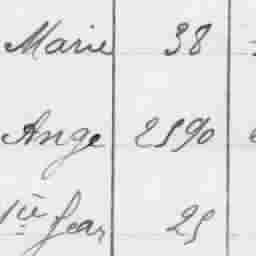 Marie 38
Ange 2590
1re Jean 25